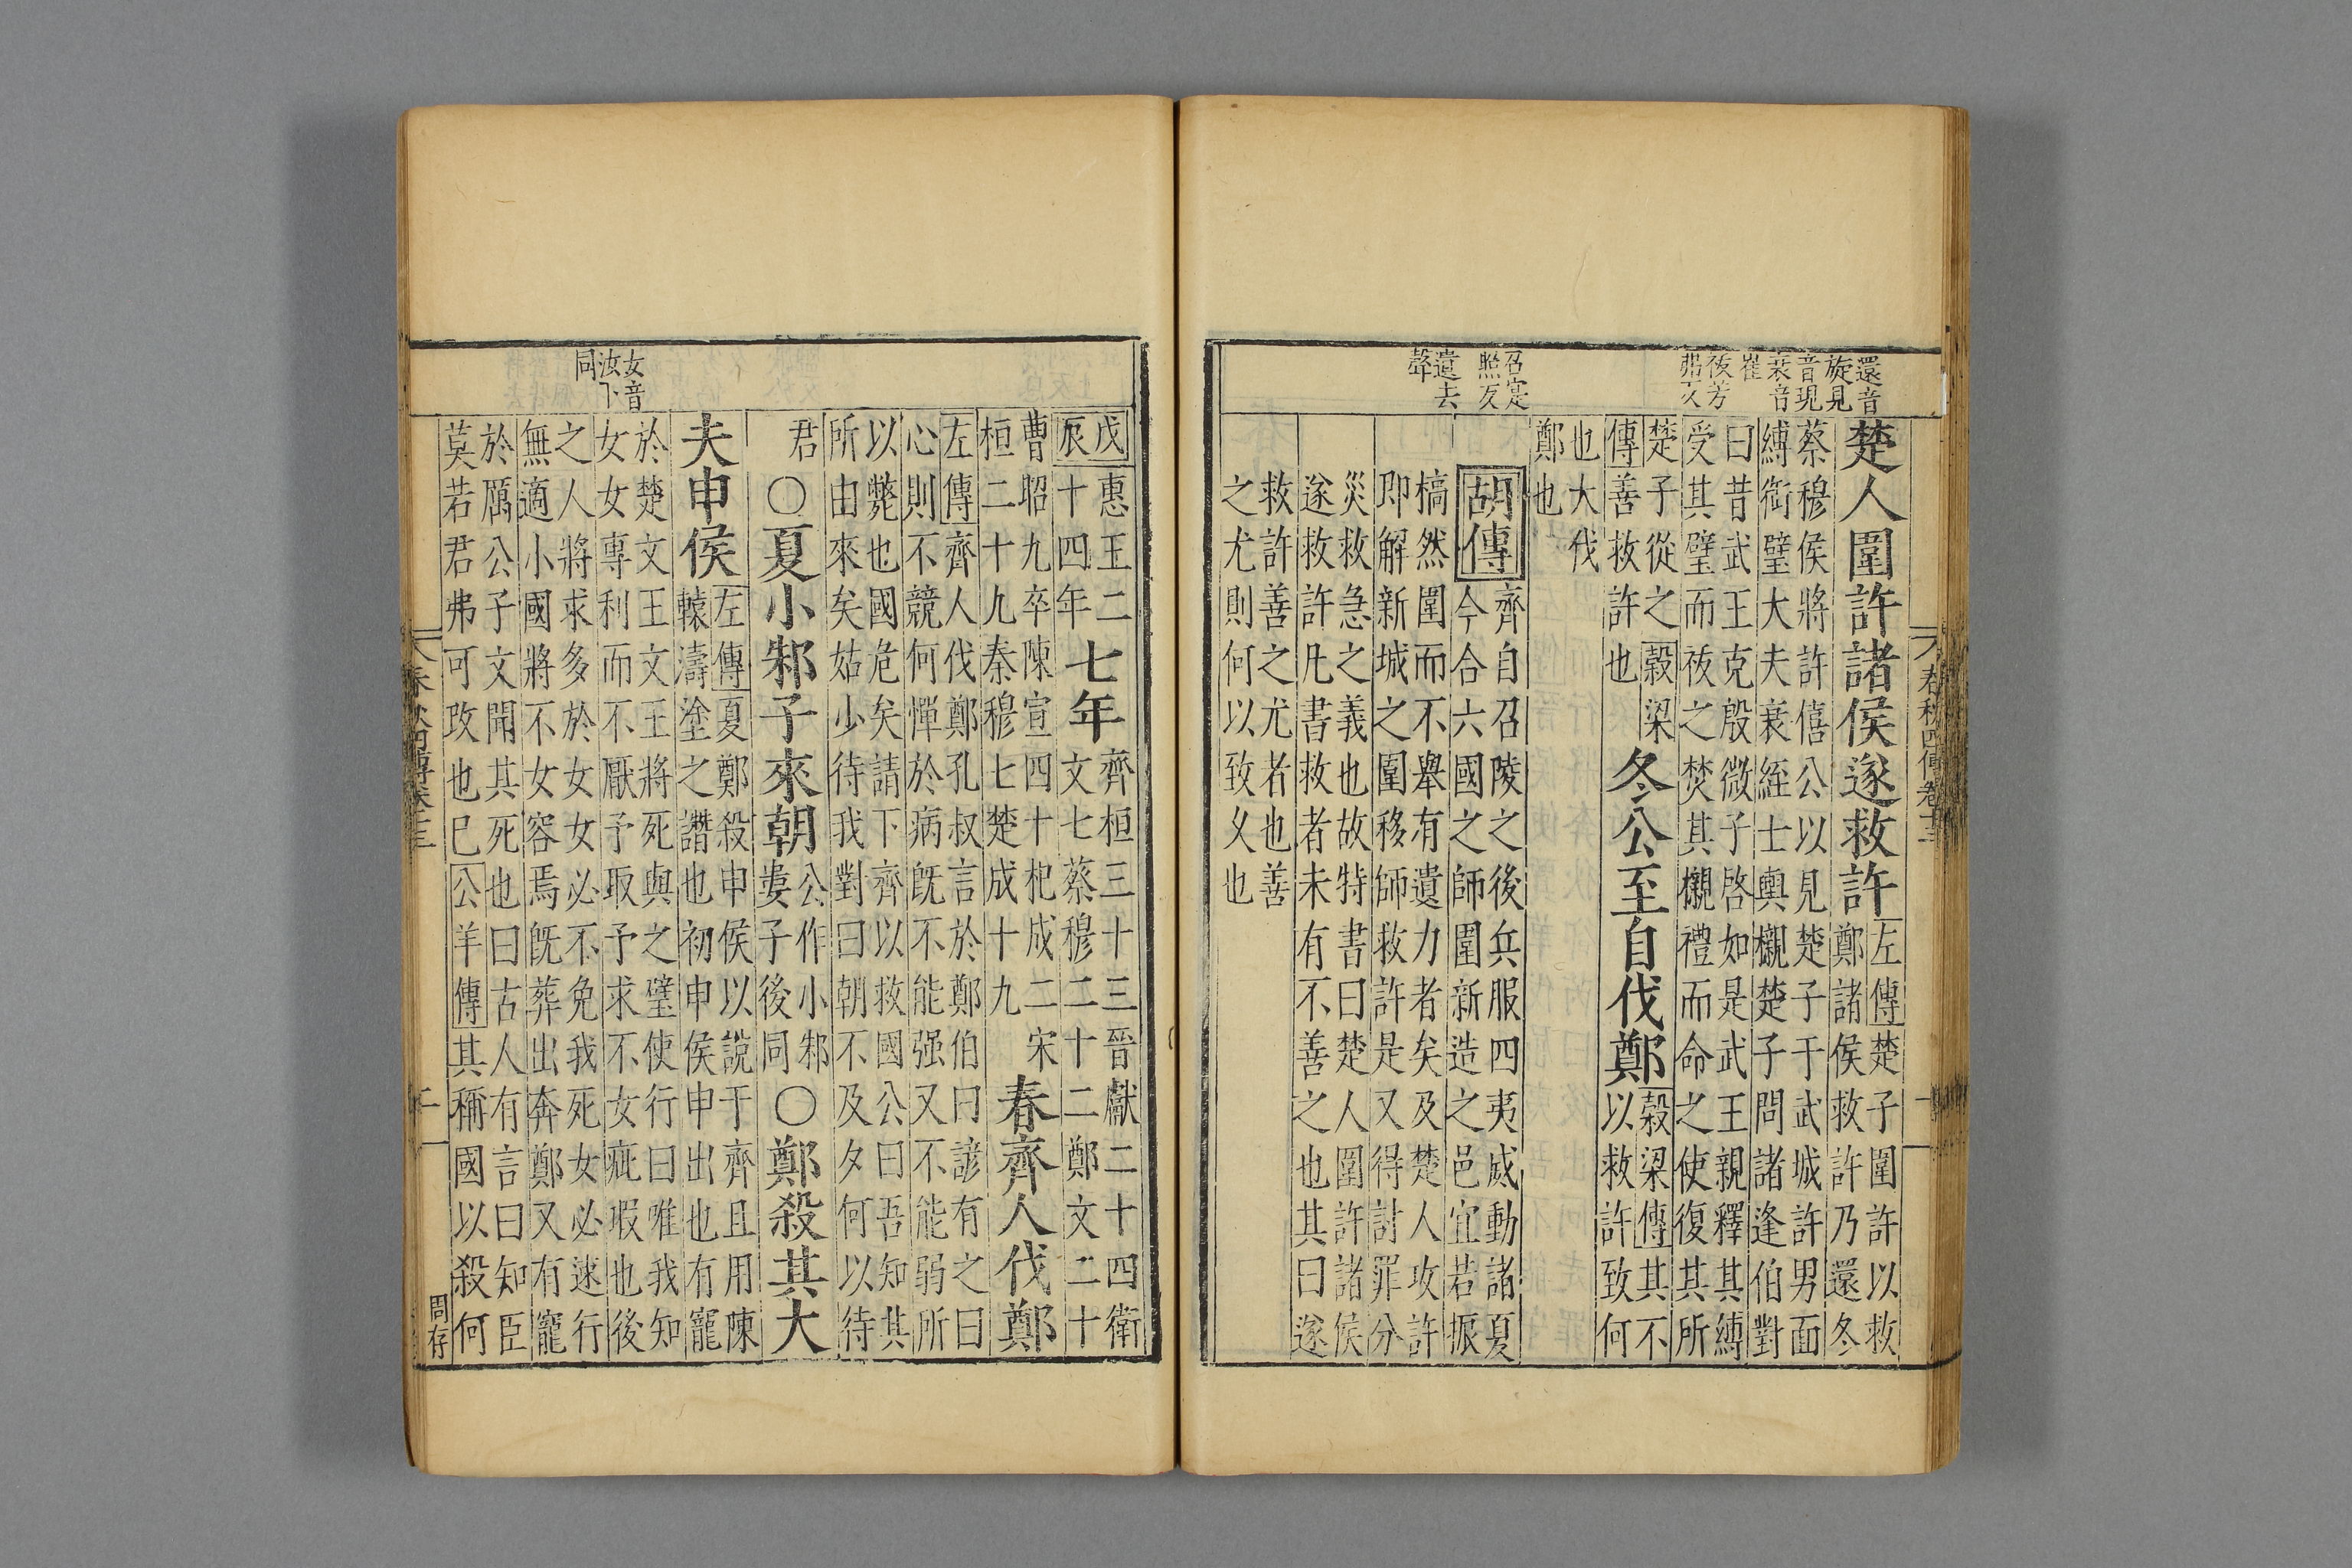 春秋四傳卷十三 一
還音
旋見
音現
衰音
崔
祓芳
弗又
召寔
照反
遺去
聲
楚人圍許諸侯遂救許
左傳楚子圍許以救
鄭諸侯救許乃還冬
蔡穆侯將許僖公以見楚子于武城許男面
縛銜璧大夫衰絰士輿櫬楚子問諸逢伯對
曰昔武王克殷微子啓如是武王親釋其縛
受其璧而祓之焚其櫬禮而命之使復其所
楚子從之穀梁
傳善救許也
冬公至自伐鄭
穀梁傳其不
以救許致何
也大伐
鄭也
胡傳
齊自召陵之後兵服四夷威動諸夏
今合六國之師圍新造之邑宜若振
槁然圍而不舉有遺力者矣及楚人攻許
即解新城之圍移師救許是又得討罪分
災救急之義也故特書曰楚人圍許諸侯
遂救許凡書救者未有不善之也其曰遂
救許善之尤者也善
之尤則何以致乂也
女音
汝下
同
戊
辰
惠王二
十四年
七年
齊桓三十三晉獻二十四衛
文七蔡穆二十二鄭文二十
曹昭九卒陳宣四十杞成二宋
桓二十九秦穆七楚成十九
春齊人伐鄭
左傳齊人伐鄭孔叔言於鄭伯曰諺有之曰
心則不競何憚於病旣不能强又不能弱所
以斃也國危矣請下齊以救國公曰吾知其
所由來矣姑少待我對曰朝不及夕何以待
君
○夏小邾子來朝
公作小邾
婁子後同
○鄭殺其大
夫申侯
左傳夏鄭殺申侯以說于齊且用陳
轅濤塗之譖也初申侯申出也有寵
於楚文王文王將死與之璧使行曰唯我知
女女專利而不厭予取予求不女疵瑕也後
之人將求多於女女必不免我死女必速行
無適小國將不女容焉旣葬出奔鄭又有寵
於厲公子文聞其死也曰古人有言曰知臣
莫若君弗可改也巳公羊傳其稱國以殺何
二
周存